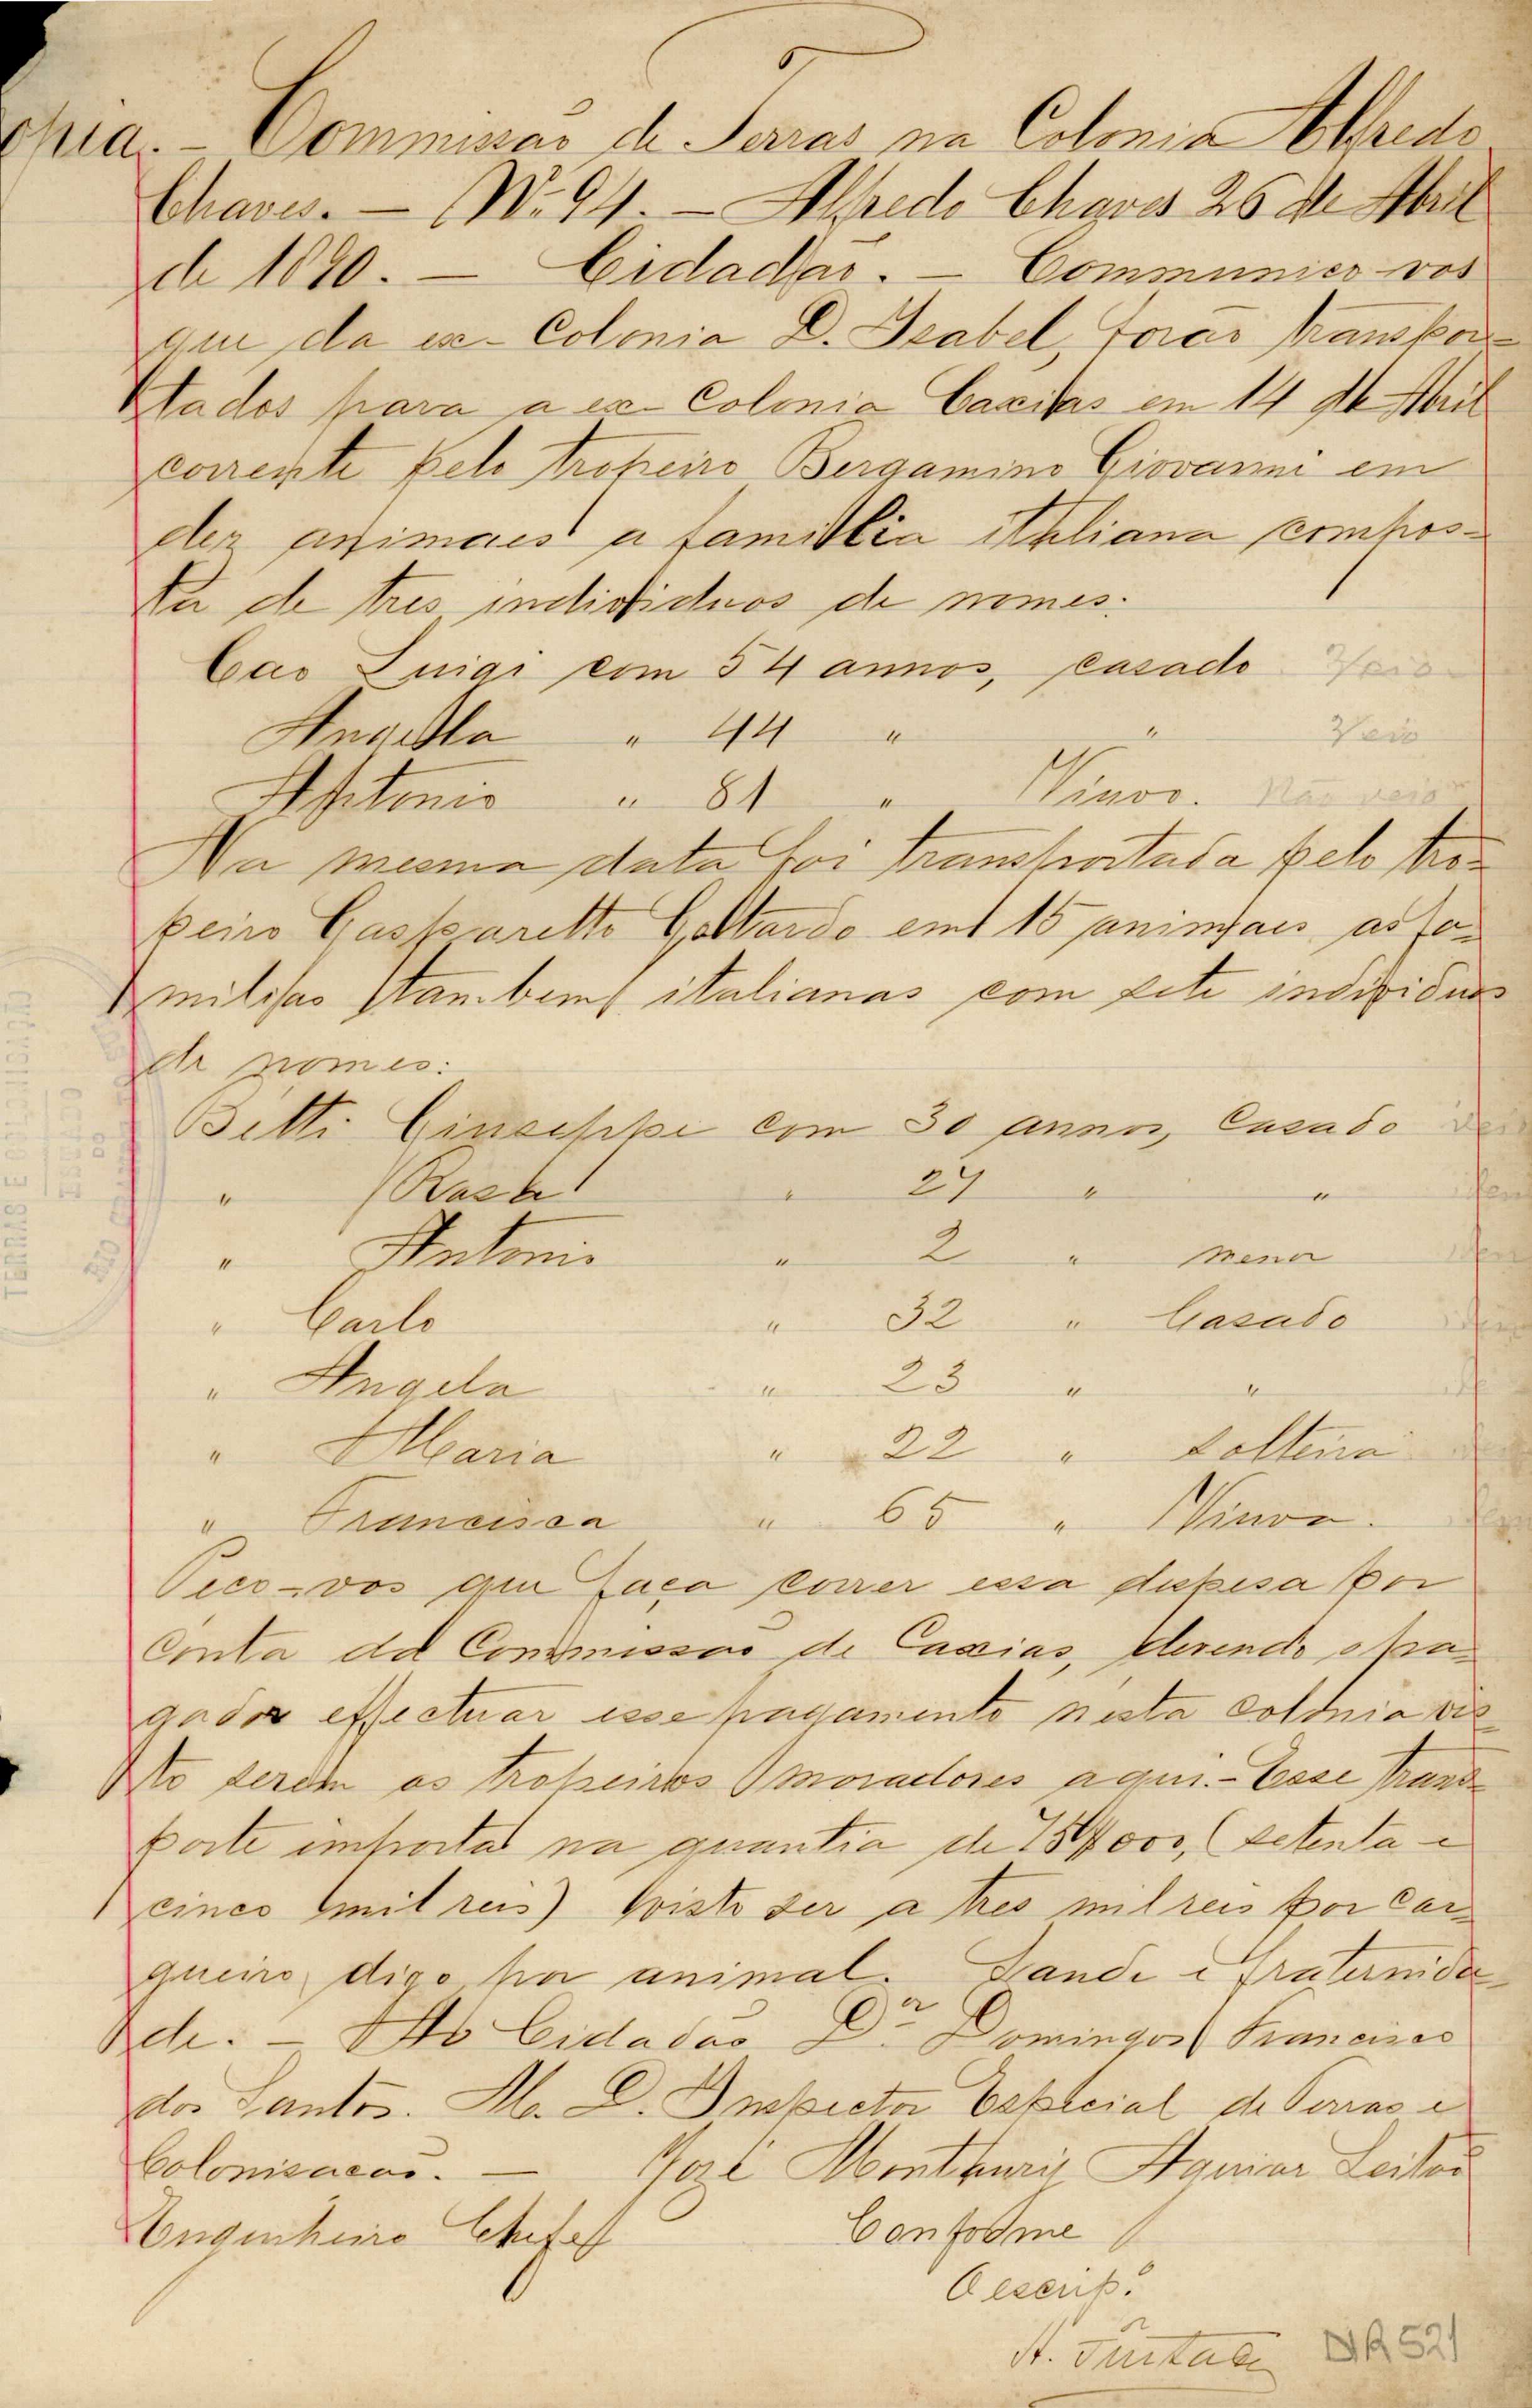 Copia. - Commissão de Terras na Colonia Alfredo
Chaves. — Nº. 94. — Alfredo Chaves 26 de Abril
de 1890. — Cidadão. — Communico-vos
que da ex-Colonia D. Isabel, forão transpor-
tados para a ex-Colonia Caxias em 14 de Abril
corrente pelo tropeiro Bergamino Giovanni em
dez animaes a familia italiana compos-
ta de tres individuos de nomes:
Cao Luigi com 54 annos, casado Veio
Angella " 44 " " Veio
Antonio " 81 " Viuvo. Não veio
Na mesma data foi transportada pelo tro-
peiro Gasparetto Gottardo em 15 animaes as fa-
milias tambem italianas com sete individuos
de nomes:
Bitti Giuseppe com 30 annos, Casado Veio
" Rosa " 27 " " idem
" Antonio " 2 " menor idem
" Carlo " 32 " Casado idem
" Angela " 23 " " id
" Maria " 22 " solteira
" Francisca " 65 " Viuva.
Peço-vos que faça correr essa despesa por
conta da Commissão de Caxias, devendo o pa-
gador effectuar esse pagamento nesta colonia vis-
to serem os tropeiros moradores aqui. - Esse trans-
porte importa na quantia de 75$000, (setenta e
cinco mil reis) visto ser a tres mil reis por car-
gueiro, digo por animal. Saude e fraternida-
de. — Ao Cidadão Dr. Domingos Francisco
dos Santos. M. D. Inspector Especial de Terras e
Colonisação. — José Montaury Aguiar Leitão
Engenheiro Chefe
Conforme
O escrip.º
A. Furtado
NR 521